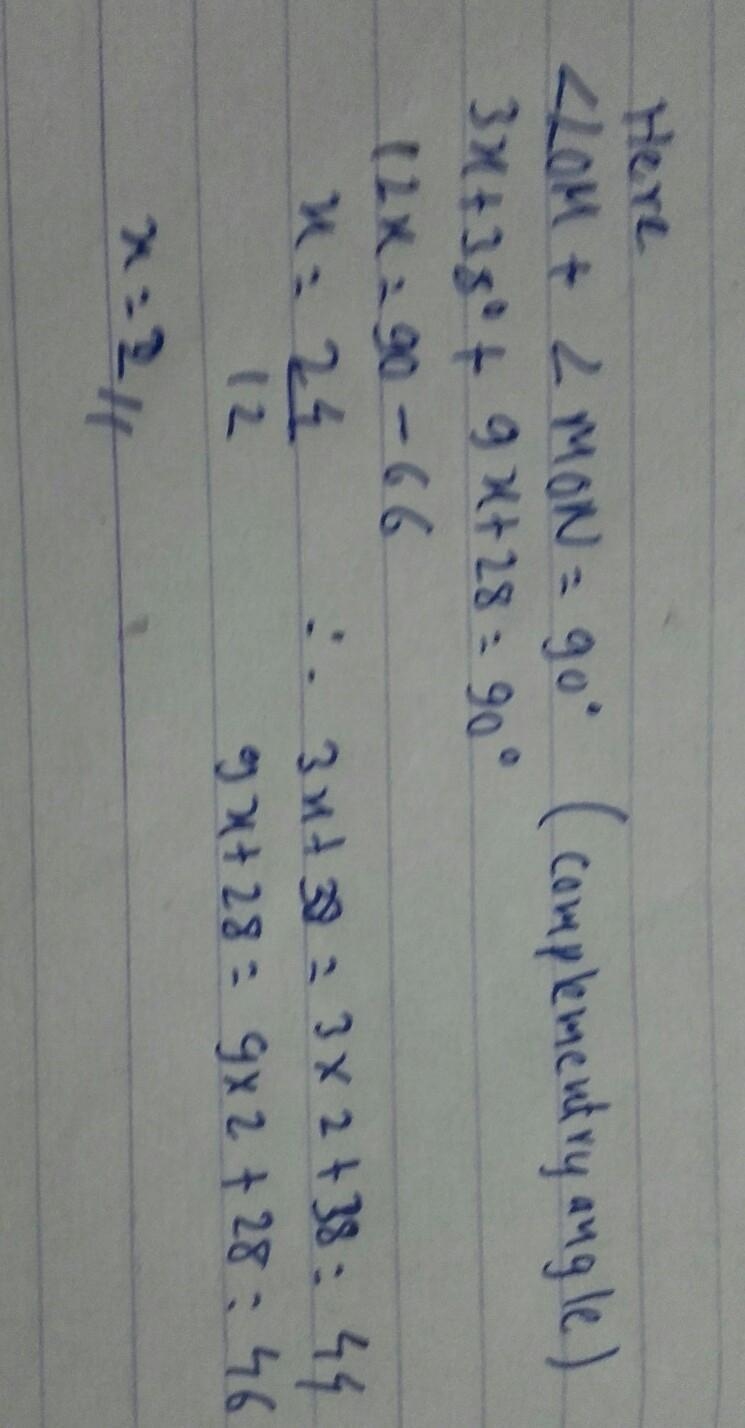 Here
∠LOM + ∠MON = 90° (complementry angle)
3x+38° + 9x+28 = 90°
12x = 90 - 66
x = 24/12 ∴ 3x+38 = 3x2+38 = 44
9x+28 = 9x2+28 = 46
x = 2//